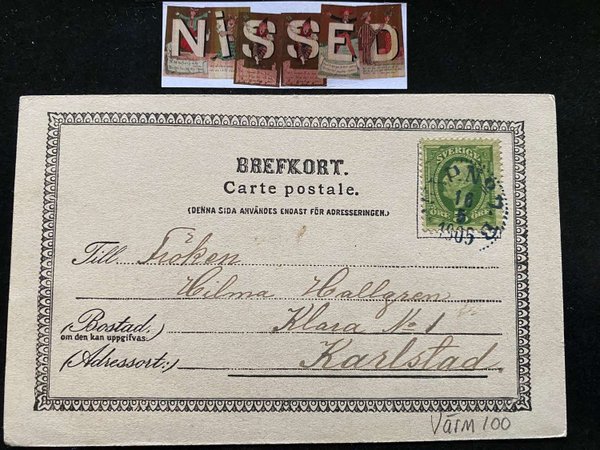 NISSED
BREFKORT.
Carte postale.
(DENNA SIDA ANVÄNDES ENDAST FÖR ADRESSERINGEN.)
SVERIGE
16
5
1905
Till Fröken
Hilma Hallgren
(Bostad.)
om den kan uppgifvas.
Klara No 1
(Adressort:)
Karlstad
Värm 100